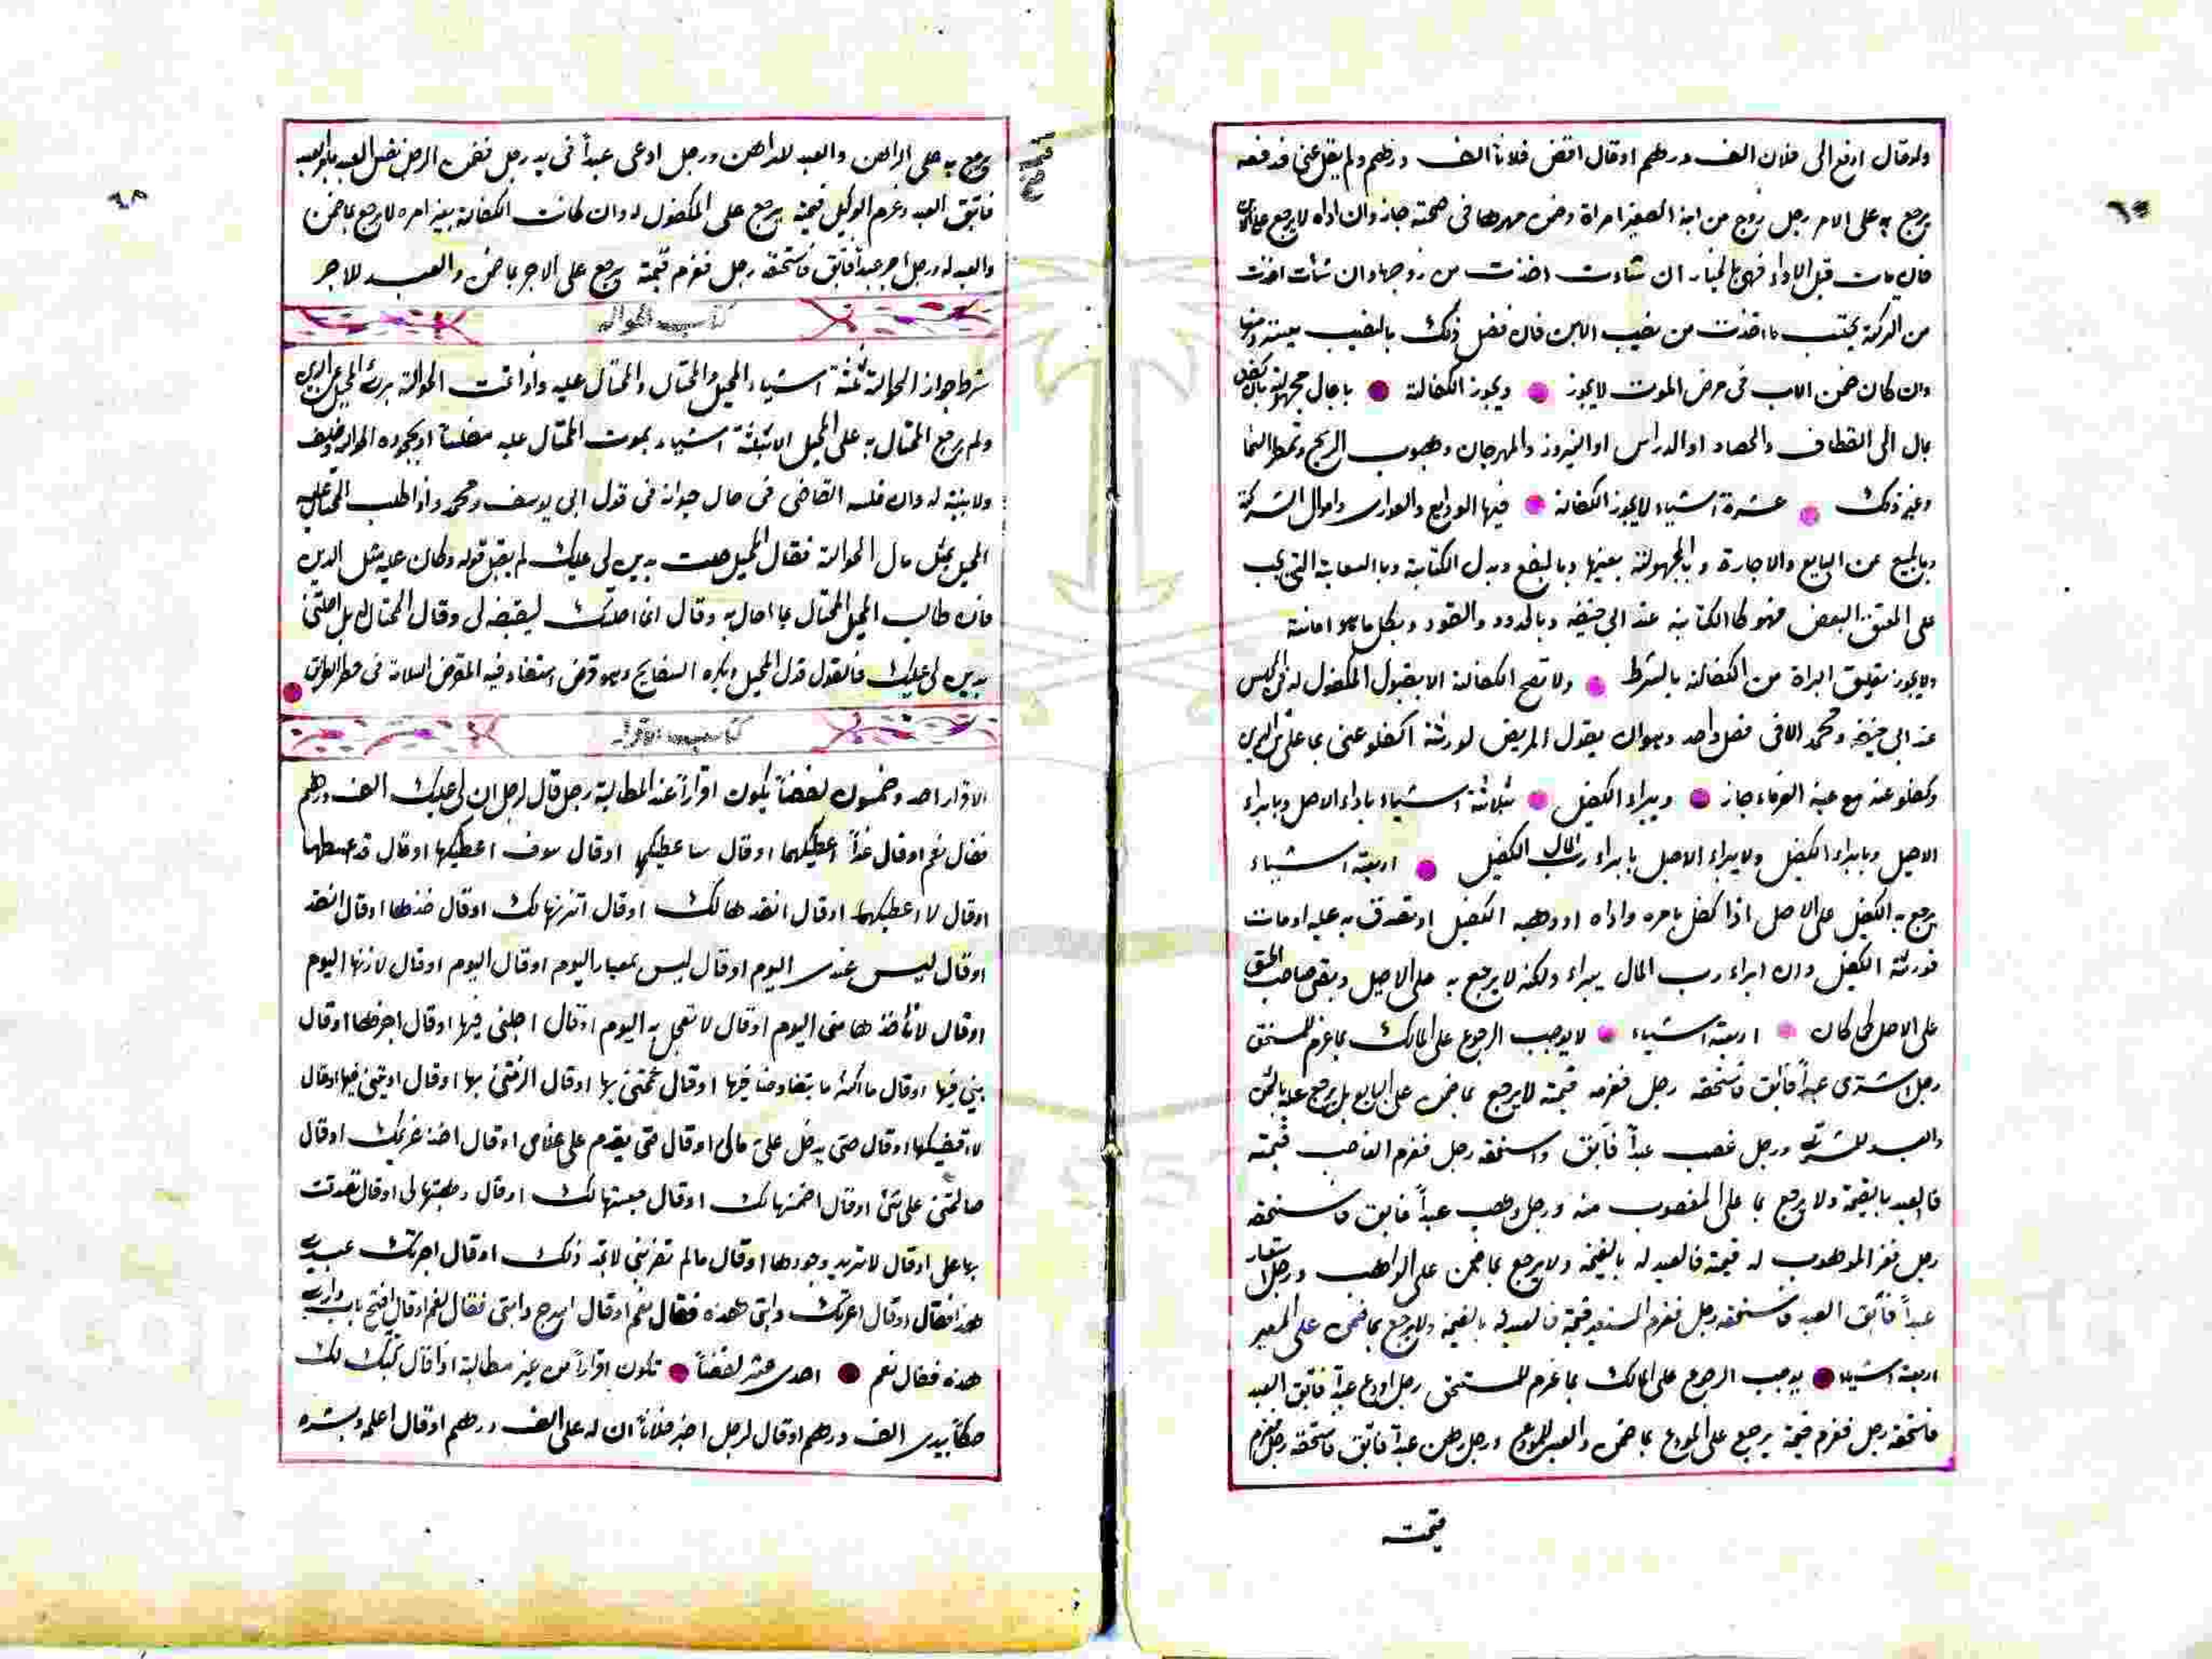 ولو قال ادفع الى فلان الف درهم او قال اقض فلانا الف درهم ولم يقل عنى فدفعه
يرجع به على الامر رجل زوج من ابنه الصغير امراة وضمن مهرها فى صحته جاز وان اداه لا يرجع على الابن
فان مات قبل الاداء فهى بالخيار ان شاءت اخذت من زوجها وان شاءت اخذت
من التركة يحتسب ما اخذت من نصيب الابن فان فضل ذلك بالنصيب
وان كان ضمن الاب فى مرض الموت لا يجوز ويجوز الكفالة باجال مجهولة
بمال الى القطاف والحصاد او الدراس او النيروز والمهرجان وهبوب الريح وتمطر السما
وغير ذلك عشرة اشياء لا يجوز الكفالة فيها الودايع والعوارى واموال الشركة
وبالمبيع عن البايع والاجارة وبالمجهولة بعينها وبالبضع وبدل الكتابة وبالسعاية التى يجب
على المعتق البعض فهو كالكتابة عند ابى حنيفه وبالحدود والقصود وبكل ما هو امانة
ولا يجوز تعليق البراة من الكفالة بالشرط ولا تصح الكفالة الا بقبول المكفول له فى المجلس
عند ابى حنيفة ومحمد الا فى فصل واحد وهو ان يقول المريض لورثته اكفلو عنى بما على من الدين
وكفلو عنه مع غيبة الغرماء جاز ويبراء الكفيل بثلاثة اشياء باداء الاصل وبابراء
الاصيل وبابراء الكفيل ولا يبراء الاصيل بابراء رب المال الكفيل اربعة اشياء
يرجع به الكفيل على الاصل اذا كفل بامره واداه او وهبه الكفيل او تصدق به عليه او مات
فورثه الكفيل وان ابراء رب المال يبراء ولكنه لا يرجع به على الاصيل وبقى صاحب الحق
على الاصل كما كان اربعة اشياء لا يوجب الرجوع على المالك بما غرم للمستحق
رجل اشترى عبداً فأبق فاستحقه رجل فغرمه قيمته لا يرجع بما ضمن على البايع بل يرجع عليه بالثمن
والعبد للمشترى ورجل غصب عبداً فأبق واستحقه رجل فغرم الغاصب قيمته
فالعبد بالقيمة ولا يرجع بما على المغصوب منه ورجل وهب عبداً فابق فاستحقه
رجل فغرم الموهوب له قيمته فالعبد له بالقيمة ولا يرجع بما ضمن على الواهب ورجل استعار
عبداً فأبق العبد فاستحقه رجل فغرم المستعير قيمة فالعبد له بالقيمة ولا يرجع بما ضمن على المعير
اربعة اشياء يوجب الرجوع على المالك بما غرم للمستحق رجل اودع عبداً فأبق العبد
فاستحقه رجل فغرم قيمة يرجع على المودع بما ضمن والعبد للمودع ورجل رهن عبداً فابق فاستحقه رجل فغرم
قيمته
قيمته
يرجع به على الراهن والعبد للراهن ورجل ادعى عبداً فى يد رجل فضمن الرجل نفس العبد
فابق العبد وغرم الوكيل قيمته يرجع على المكفول له وان كانت الكفالة بغير امره لا يرجع بما ضمن
والعبد له ورجل اجر عبداً فأبق فاستحقه رجل فغرم قيمته يرجع على الاجر بما ضمن والعبد للاجر
كتاب الحواله
شرط جواز الحوالة ثلثة اشياء المحيل والمحتال والمحتال عليه واذا تمت الحوالة برئ المحيل من الدين
ولم يرجع المحتال به على المحيل الا بثلثة اشياء بموت المحتال عليه مفلسا او بجحوده الحواله وحلف
ولا بينة له وان فلسه القاضى فى حال حيواته فى قول ابى يوسف ومحمد واذا طلب المحتال عليه
المحيل بمثل مال الحوالة فقال المحيل احلت بدين لى عليك لم يقبل قوله وكان عليه مثل الدين
فان طالب المحيل المحتال بما احال به وقال انما احلتك ليقبضه لى وقال المحتال له بل احلتنى
بدين لى عليك فالقول قول المحيل ويكره السفاتج وهو قرض استفاد فيه المقرض السلامة فى خطر الطريق
كتاب الاقرار
الاقرار احد وخمسون لفضاً يكون اقراراً عند المطالبة رجل قال لرجل ان لى عليك الف درهم
فقال نعم او قال غداً اعطيكها او قال ساعطيكها او قال سوف اعطيكها او قال قد اعطيتها
او قال لا اعطيكها او قال انقدها لك او قال اتزنها لك او قال خذها او قال انتقد
او قال ليس عندى اليوم او قال ليس بمعيار اليوم او قال اليوم او قال لازنها اليوم
او قال لا تأخذها منى اليوم او قال لا تعجل به اليوم او قال اجلنى فيها او قال اخرها او قال
فيها او قال ما اكثر ما يتقاوضا فيها او قال غممتنى بها او قال الزمتنى بها او قال اذيتنى فيها او قال
لا اقضيكها او قال حتى يدخل على مالى او قال حتى يقدم على غلامى او قال اخذ غريمك او قال
صالحنى على شئ او قال اضمنها لك او قال او قال وهبتها لى او قال تصدقت
بها على او قال لا تريد وجودها او قال مالم ذلك او قال اجرتك عبدى
هذا فقال او قال اعرتك دابتى هذه فقال نعم او قال اسرج دابتى فقال نعم او قال افتح باب دارى
هذه فقال نعم احدى عشر لفضاً تكون اقراراً من غير مطالبة اذا قال كتبت لك
صكاً بيدى الف درهم او قال لرجل اخبر فلاناً ان له على الف درهم او قال اعلمه وبشره